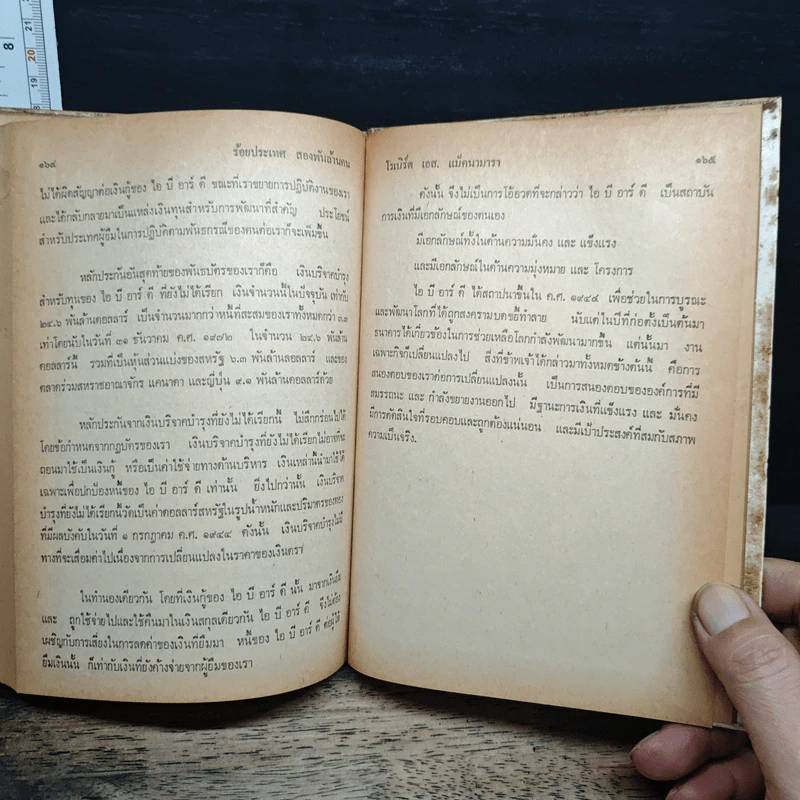 ๑๖๔ ร้อยประเทศ สองพันล้านคน
ไม่ได้ผิดสัญญาต่อเงินกู้ของ ไอ บี อาร์ ดี ขณะที่เราขยายการปฏิบัติงานของเรา
และได้กลับกลายมาเป็นแหล่งเงินทุนสำหรับการพัฒนาที่สำคัญ ประโยชน์
สำหรับประเทศผู้ยืมในการปฏิบัติตามพันธกรณีของตนต่อเราก็จะเพิ่มขึ้น
หลักประกันอันสุดท้ายของพันธบัตรของเราก็คือ เงินบริจาคบำรุง
สำหรับทุนของ ไอ บี อาร์ ดี ที่ยังไม่ได้เรียก เงินจำนวนนี้ในปัจจุบัน เท่ากับ
๒๔.๖ พันล้านดอลลาร์ เป็นจำนวนมากกว่าหนี้ที่สะสมของเราทั้งหมดกว่า
เท่าโดยนับในวันที่ ๓๑ ธันวาคม ค.ศ. ๑๙๗๒ ในจำนวน ๒๔.๖ พันล้าน
ดอลลาร์นี้ รวมทั้งเป็นส่วนแบ่งของสหรัฐ ๖.๓ พันล้านดอลลาร์ และของ
ตลาดร่วมสหราชอาณาจักร แคนาดา และญี่ปุ่น ๙.๑ พันล้านดอลลาร์ด้วย
หลักประกันจากเงินบริจาคบำรุงที่ยังไม่ได้เรียกนี้ ไม่สึกกร่อนไปได้
โดยข้อกำหนดจากกฎบัตรของเรา เงินบริจาคบำรุงที่ยังไม่ได้เรียกไม่อาจที่จะ
ถอนมาใช้เป็นเงินกู้ หรือเป็นค่าใช้จ่ายทางด้านบริหาร เงินเหล่านี้นำมาใช้ได้
เฉพาะเพื่อปกป้องหนี้ของ ไอ บี อาร์ ดี เท่านั้น ยิ่งไปกว่านั้น เงินบริจาค
บำรุงที่ยังไม่ได้เรียกนี้วัดเป็นค่าดอลลาร์สหรัฐในรูปน้ำหนักและปริมาตรของทอง
ที่มีผลบังคับในวันที่ ๑ กรกฎาคม ค.ศ. ๑๙๔๔ ดังนั้น เงินบริจาคบำรุงไม่มี
ทางที่จะเสื่อมค่าไปเนื่องจากการเปลี่ยนแปลงในราคาของเงินตรา
ในทำนองเดียวกัน โดยที่เงินกู้ของ ไอ บี อาร์ ดี นั้น มาจากเงินยืม
และ ถูกใช้จ่ายไปและใช้คืนมาในเงินสกุลเดียวกัน ไอ บี อาร์ ดี จึงไม่ต้อง
เผชิญกับการเสี่ยงในการลดค่าของเงินที่ยืมมา หนี้ของ ไอ บี อาร์ ดี ต่อผู้ให้
ยืมเงินนั้น ก็เท่ากับเงินที่ยังค้างจ่ายจากผู้ยืมของเรา
โรเบิร์ต เอส. แม็คนามารา ๑๖๕
ดังนั้น จึงไม่เป็นการโอ้อวดที่จะกล่าวว่า ไอ บี อาร์ ดี เป็นสถาบัน
การเงินที่มีเอกลักษณ์ของตนเอง
มีเอกลักษณ์ทั้งในด้านความมั่นคง และ แข็งแรง
และมีเอกลักษณ์ในด้านความมุ่งหมาย และ โครงการ
ไอ บี อาร์ ดี ได้สถาปนาขึ้นใน ค.ศ. ๑๙๔๔ เพื่อช่วยในการบูรณะ
และพัฒนาโลกที่ได้ถูกสงครามบดขยี้ทำลาย นับแต่ในปีที่ก่อตั้งเป็นต้นมา
ธนาคารได้เกี่ยวข้องในการช่วยเหลือโลกกำลังพัฒนามากขึ้น แต่นั้นมา งาน
เฉพาะกิจก็เปลี่ยนแปลงไป สิ่งที่ข้าพเจ้าได้กล่าวมาทั้งหมดข้างต้นนี้ คือการ
สนองตอบของเราต่อการเปลี่ยนแปลงนั้น เป็นการสนองตอบขององค์การที่มี
สมรรถนะ และ กำลังขยายงานออกไป มีฐานะการเงินที่แข็งแรง และ มั่นคง
มีการตัดสินใจที่รอบคอบและถูกต้องแน่นอน และมีเป้าประสงค์ที่สมกับสภาพ
ความเป็นจริง.
8
21
20
19
18